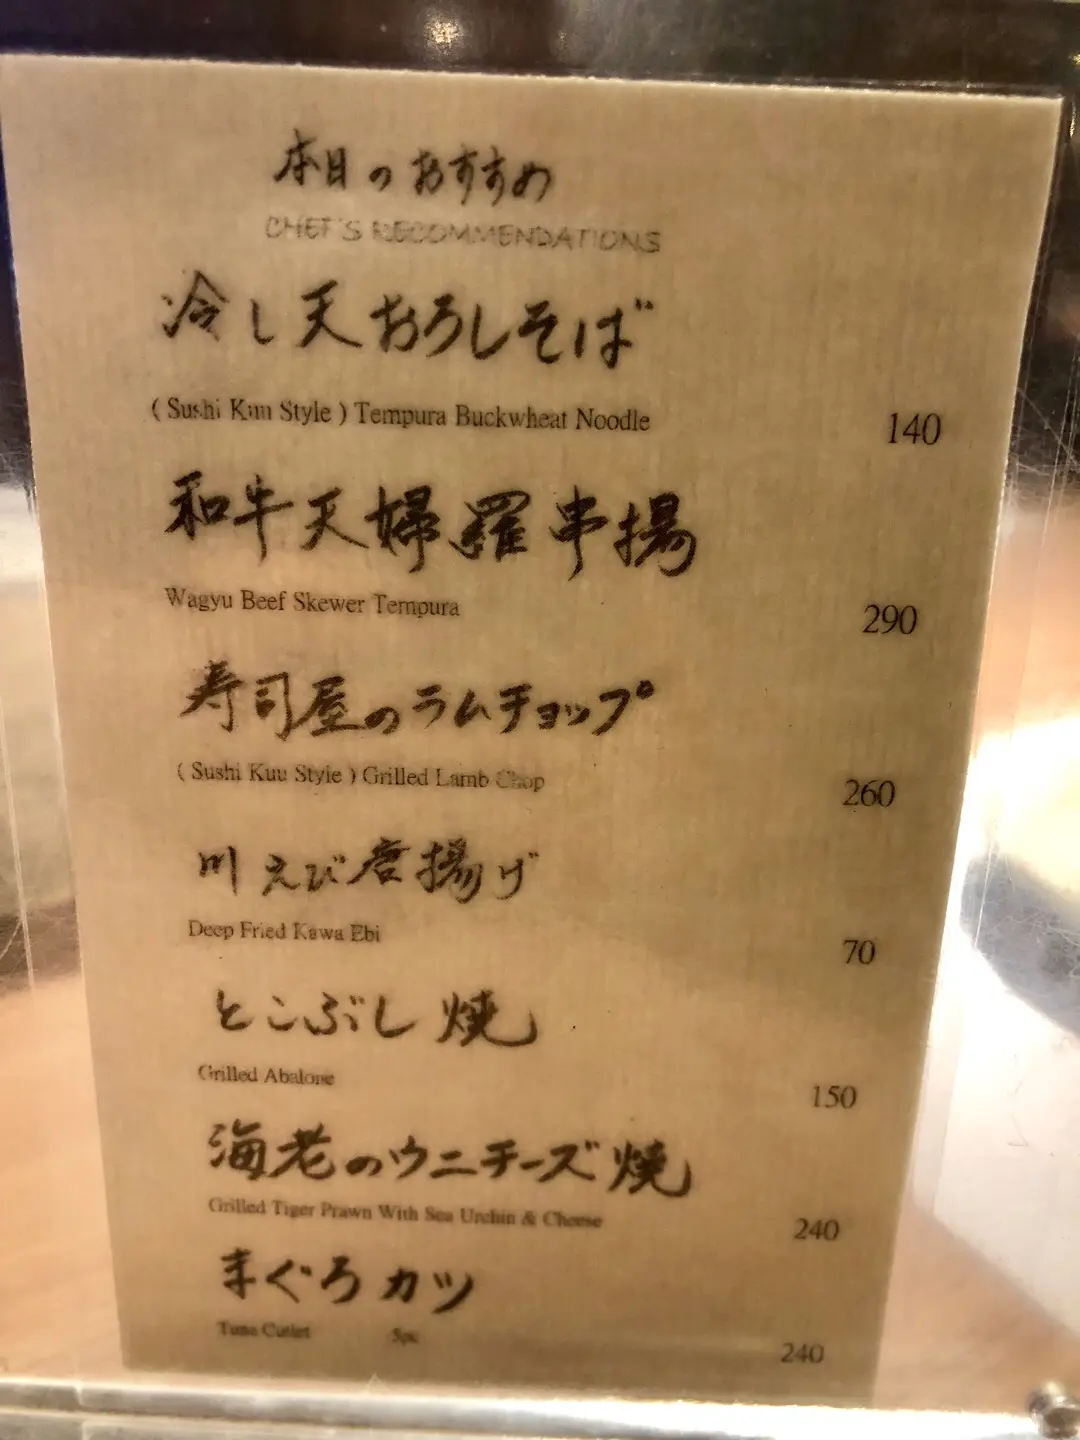 本日のおすすめ
CHEF'S RECOMMENDATIONS
冷し天おろしそば
( Sushi Kuu Style ) Tempura Buckwheat Noodle 140
和牛天婦羅串揚
Wagyu Beef Skewer Tempura 290
寿司屋のラムチョップ
( Sushi Kuu Style ) Grilled Lamb Chop 260
川えび唐揚げ
Deep Fried Kawa Ebi 70
とこぶし焼
Grilled Abalone 150
海老のウニチーズ焼
Grilled Tiger Prawn With Sea Urchin & Cheese 240
まぐろカツ
Tuna Cutlet 5pc 240